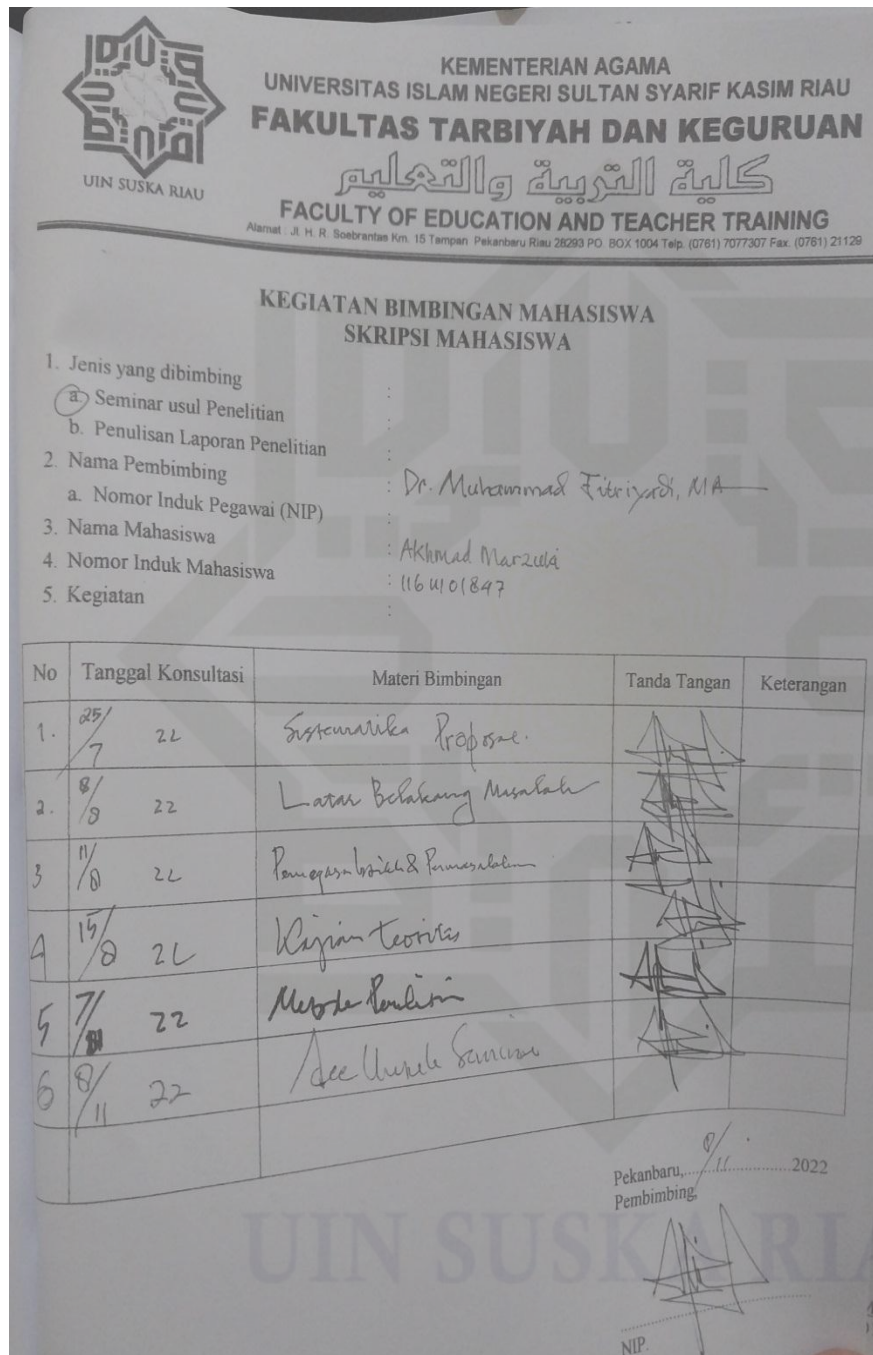 UIN SUSKA RIAU
KEMENTERIAN AGAMA
UNIVERSITAS ISLAM NEGERI SULTAN SYARIF KASIM RIAU
FAKULTAS TARBIYAH DAN KEGURUAN
كلية التربية والتعليم
FACULTY OF EDUCATION AND TEACHER TRAINING
Alamat : Jl. H. R. Soebrantas Km. 15 Tampan Pekanbaru Riau 28293 PO. BOX 1004 Telp. (0761) 7077307 Fax. (0761) 21129
KEGIATAN BIMBINGAN MAHASISWA
SKRIPSI MAHASISWA
1. Jenis yang dibimbing :
a. Seminar usul Penelitian :
b. Penulisan Laporan Penelitian :
2. Nama Pembimbing : Dr. Muhammad Fitriyadi, MA
a. Nomor Induk Pegawai (NIP) :
3. Nama Mahasiswa : Akhmad Marzuki
4. Nomor Induk Mahasiswa :
5. Kegiatan :
No Tanggal Konsultasi Materi Bimbingan Tanda Tangan Keterangan
1. 25/7 22 Sistematika Proposal.
2. 8/8 22 Latar Belakang Masalah
3 11/8 22 & Permasalahan
4 15/8 22 Kajian Teoritis
5 7/11 22 Metode
6 8/11 22 Acc Seminar
Pekanbaru, 8/11 2022
Pembimbing,
NIP.
UIN SUSKA RIA